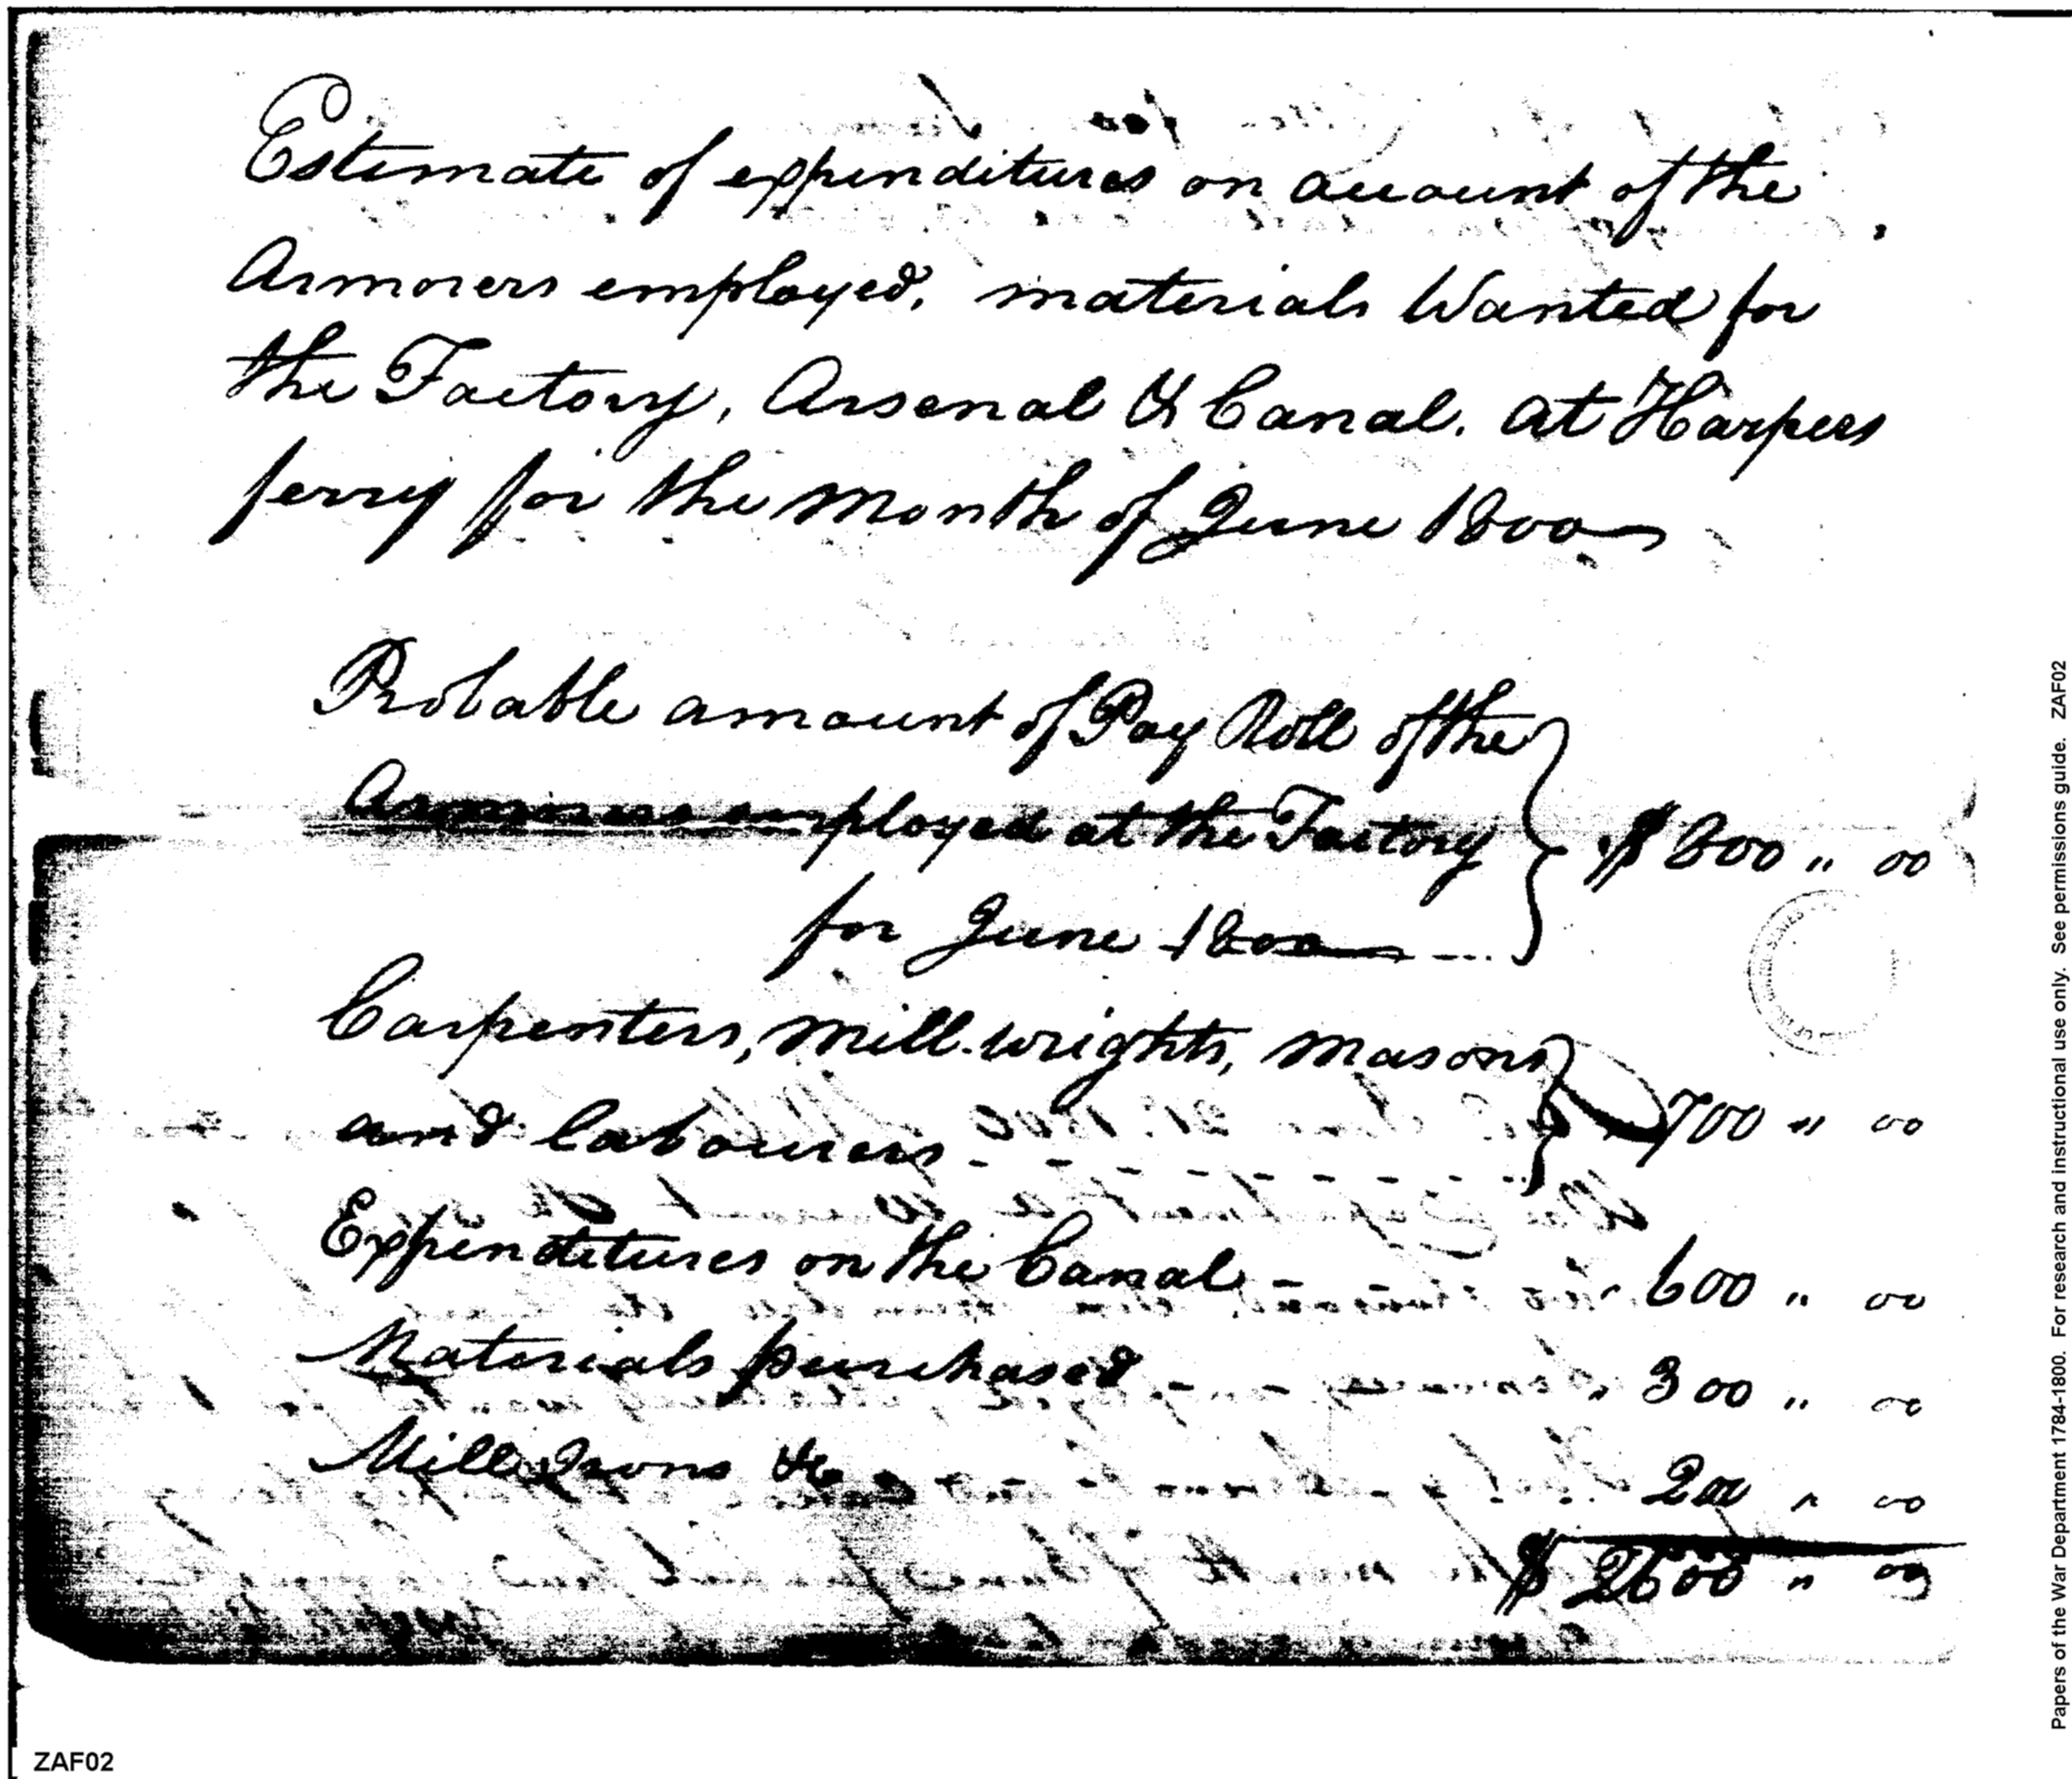 Estimate of expenditures on account of the
Armorers employed, materials Wanted for
the Factory, Arsenal & Canal. at Harpers
ferry for the Month of June 1800
Probable amount of Pay Roll of the
Armorers employed at the Factory $800 " 00
for June 1800
Carpenters, Mill-wrights, Masons
and labourers 700 " 00
Expenditures on the Canal 600 " 00
Materials purchased 300 " 00
Mill Irons &c 200 " 00
$ 2600 " 00
Papers of the War Department 1784-1800. For research and instructional use only. See permissions guide. ZAF02
ZAF02